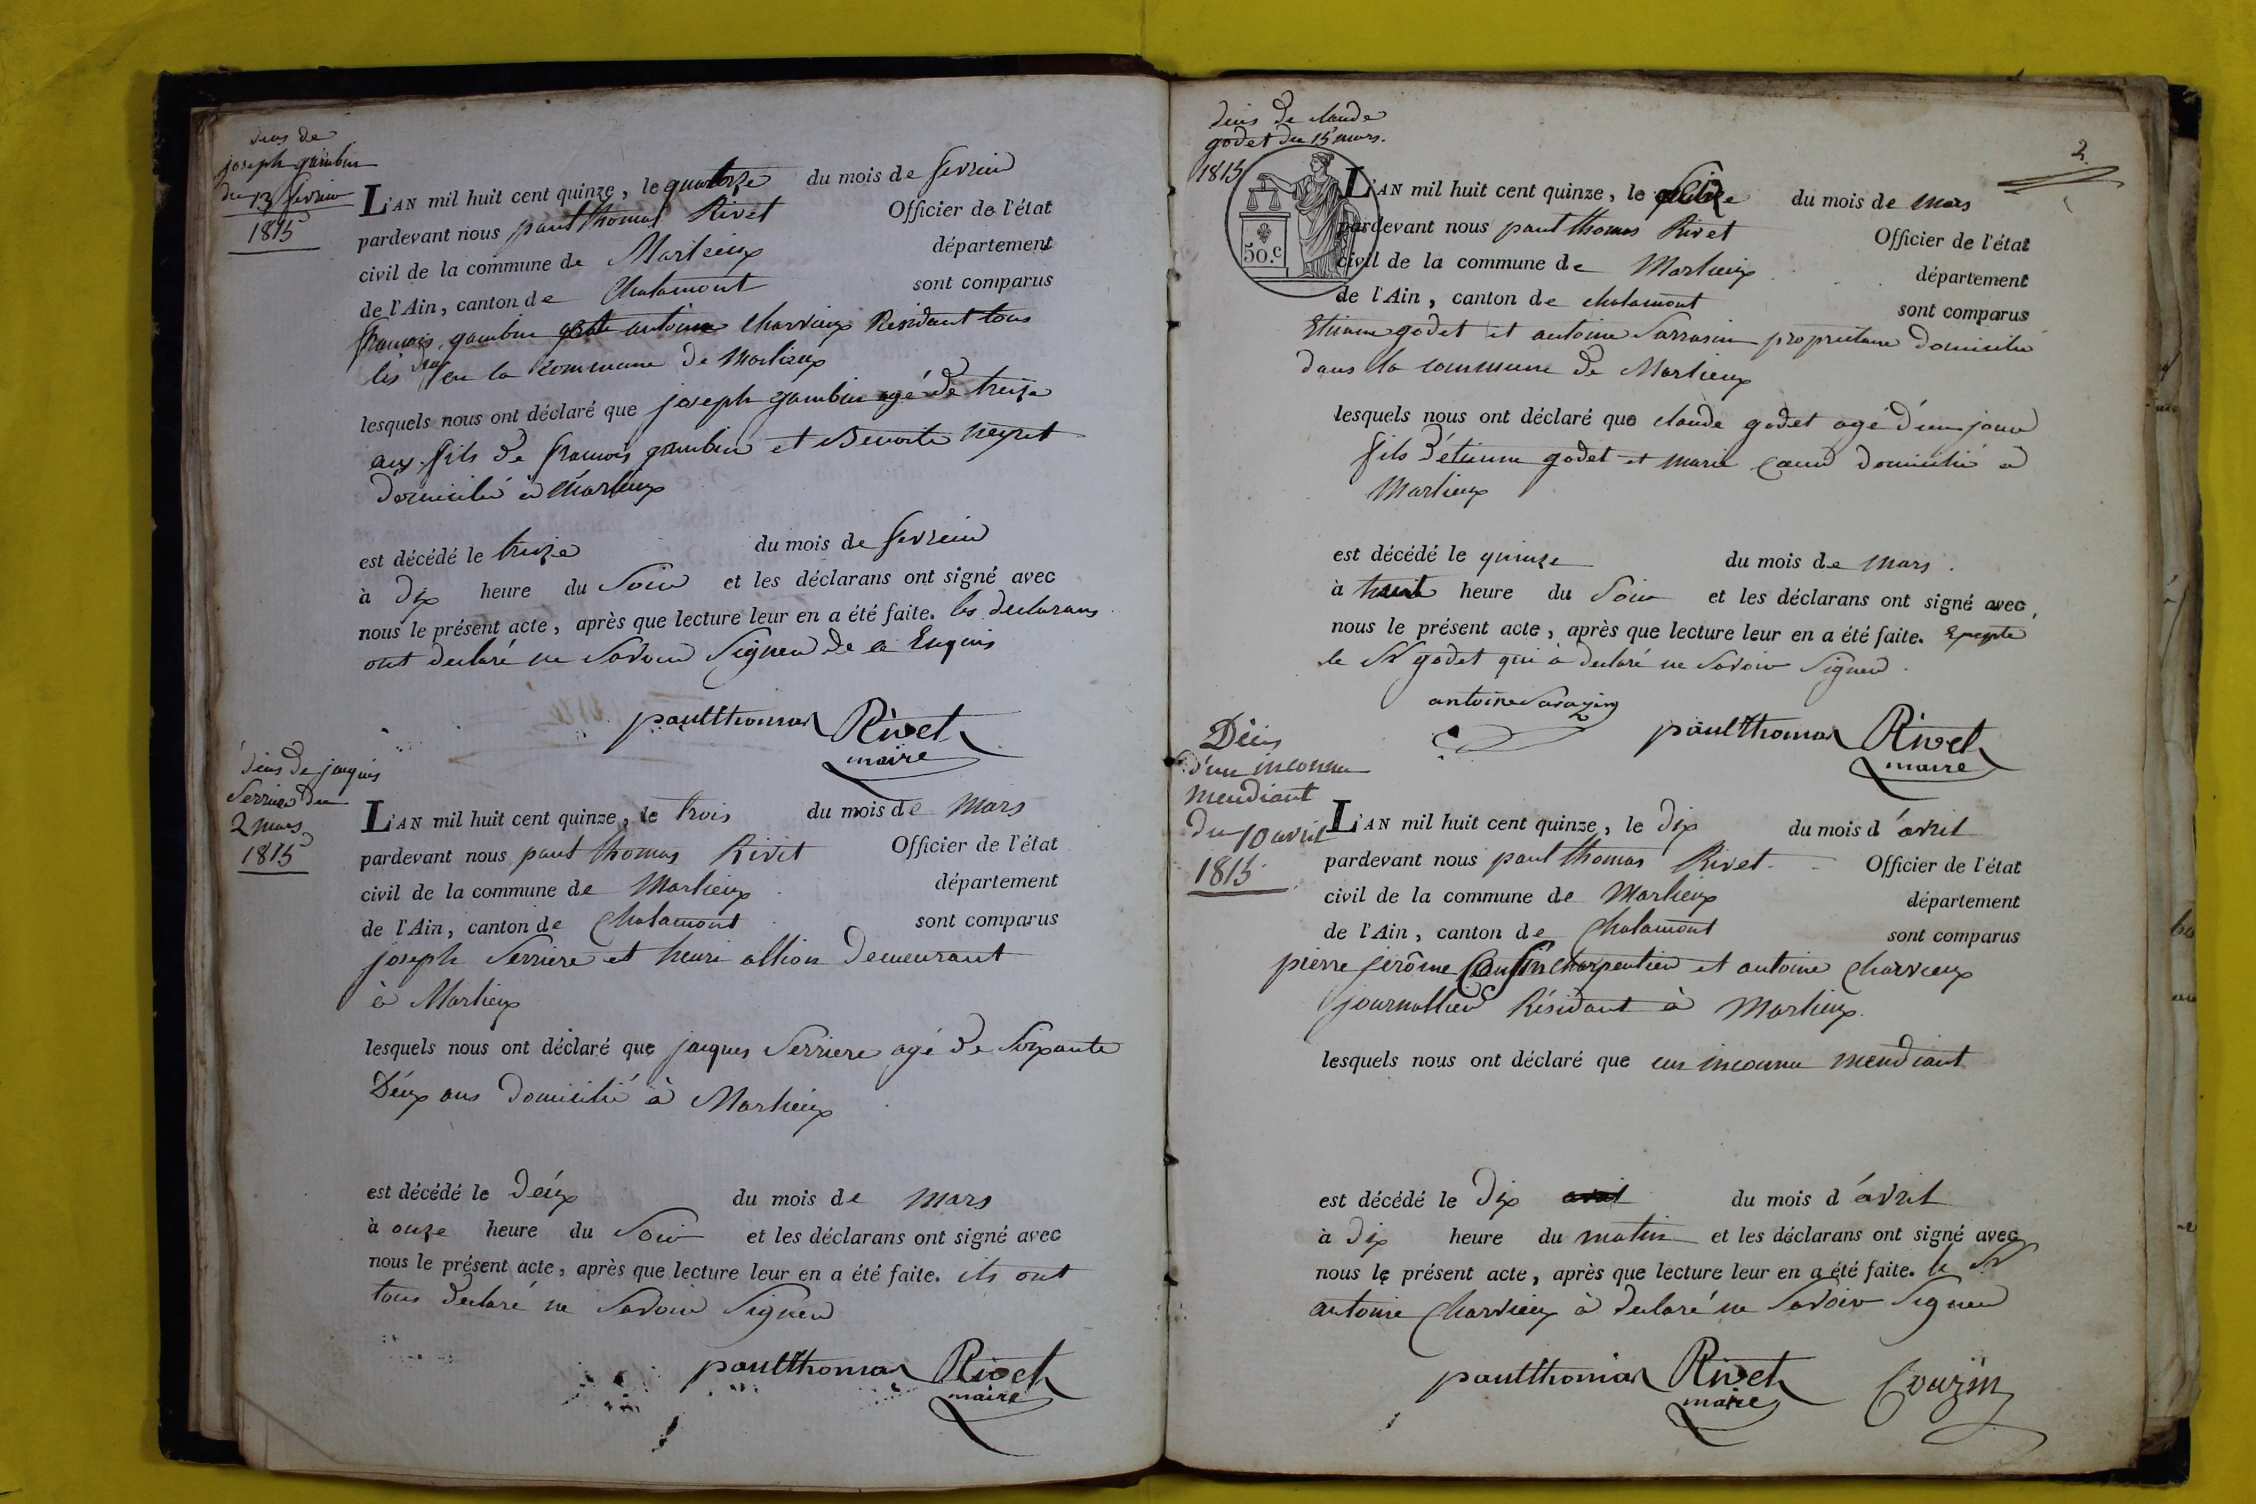 décès de
joseph gambin
du 13 fevrier
1815
L'AN mil huit cent quinze, le quatorze du mois de fevrier
pardevant nous paul thomas Rivet Officier de l'état
civil de la commune de Marlieux département
de l'Ain, canton de Chalamont sont comparus
francois gambin antoine Charvieux Résidant tous
les deux en la commune de Marlieux
lesquels nous ont déclaré que joseph gambin agé de treize
ans fils de francois gambin et Benoite Neyret
domicilié à Marlieux
est décédé le treize du mois de fevrier
à dix heure du Soir et les déclarans ont signé avec
nous le présent acte, après que lecture leur en a été faite. les declarans
ont declaré ne Savoir Signer de ce Enquis
paul thomas Rivet
maire
décès de jacques
Serriere du
2 mars
1815
L'AN mil huit cent quinze, le trois du mois de Mars
pardevant nous paul thomas Rivet Officier de l'état
civil de la commune de Marlieux département
de l'Ain, canton de Chalamont sont comparus
joseph Serriere et henri allion Demeurant
à Marlieux
lesquels nous ont déclaré que jacques Serriere agé de Soixante
Deux ans Domicilié à Marlieux
est décédé le Deux du mois de Mars
à onze heure du Soir et les déclarans ont signé avec
nous le présent acte, après que lecture leur en a été faite. ils ont
tous declaré ne Savoir Signer
paul thomas Rivet
maire
décès de claude
godet du 15 mars.
1815
2
50.c
L'AN mil huit cent quinze, le seize du mois de Mars
pardevant nous paul thomas Rivet Officier de l'état
civil de la commune de Marlieux département
de l'Ain, canton de chalamont sont comparus
Etienne godet et antoine Sarrasin propriétaire domicilié
dans la commune de Marlieux
lesquels nous ont déclaré que claude godet agé d'un jour
fils d'étienne godet et marie domicilié à
Marlieux
est décédé le quinze du mois de Mars.
à huit heure du Soir et les déclarans ont signé avec
nous le présent acte, après que lecture leur en a été faite. Excepté
le Sr godet qui à declaré ne Savoir Signer.
antoine Sarazin
paul thomas Rivet
maire
Décès
d'un inconnu
mendiant
du 10 avril
1815.
L'AN mil huit cent quinze, le dix du mois d'avril
pardevant nous paul thomas Rivet Officier de l'état
civil de la commune de Marlieux département
de l'Ain, canton de Chalamont sont comparus
pierre jerôme Cousin charpentier et antoine Charvieux
journallier Résidant à Marlieux.
lesquels nous ont déclaré que un inconnu mendiant
est décédé le Dix avril du mois d'avril
à dix heure du matin et les déclarans ont signé avec
nous le présent acte, après que lecture leur en a été faite. le Sr
antoine Charvieux à declaré ne Savoir Signer
paul thomas Rivet
maire
Couzin